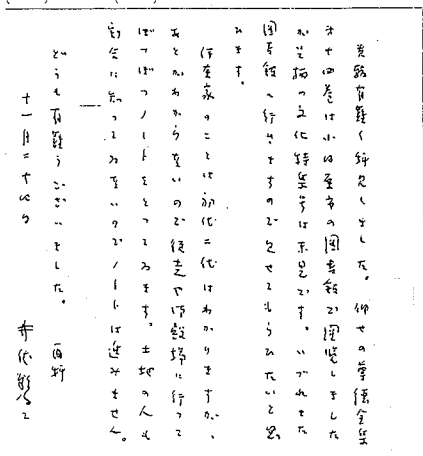 貴翰有難く拝見しました。仰せの蕚徳全集
第十四巻は小田原市の図書館で閲覧しました
が、の文化特集号は未見です。いづれまた
図書館へ行きますので見せてもらひたいと思
ひます。
のことは初代二代はわかりますが、
あとがわからないので役場に行って
ぼつぼつノートをとってゐます。土地の人も
割合に知ってゐないのでノートは進みません。
どうも有難うございました。 再拝
十一月二十八日